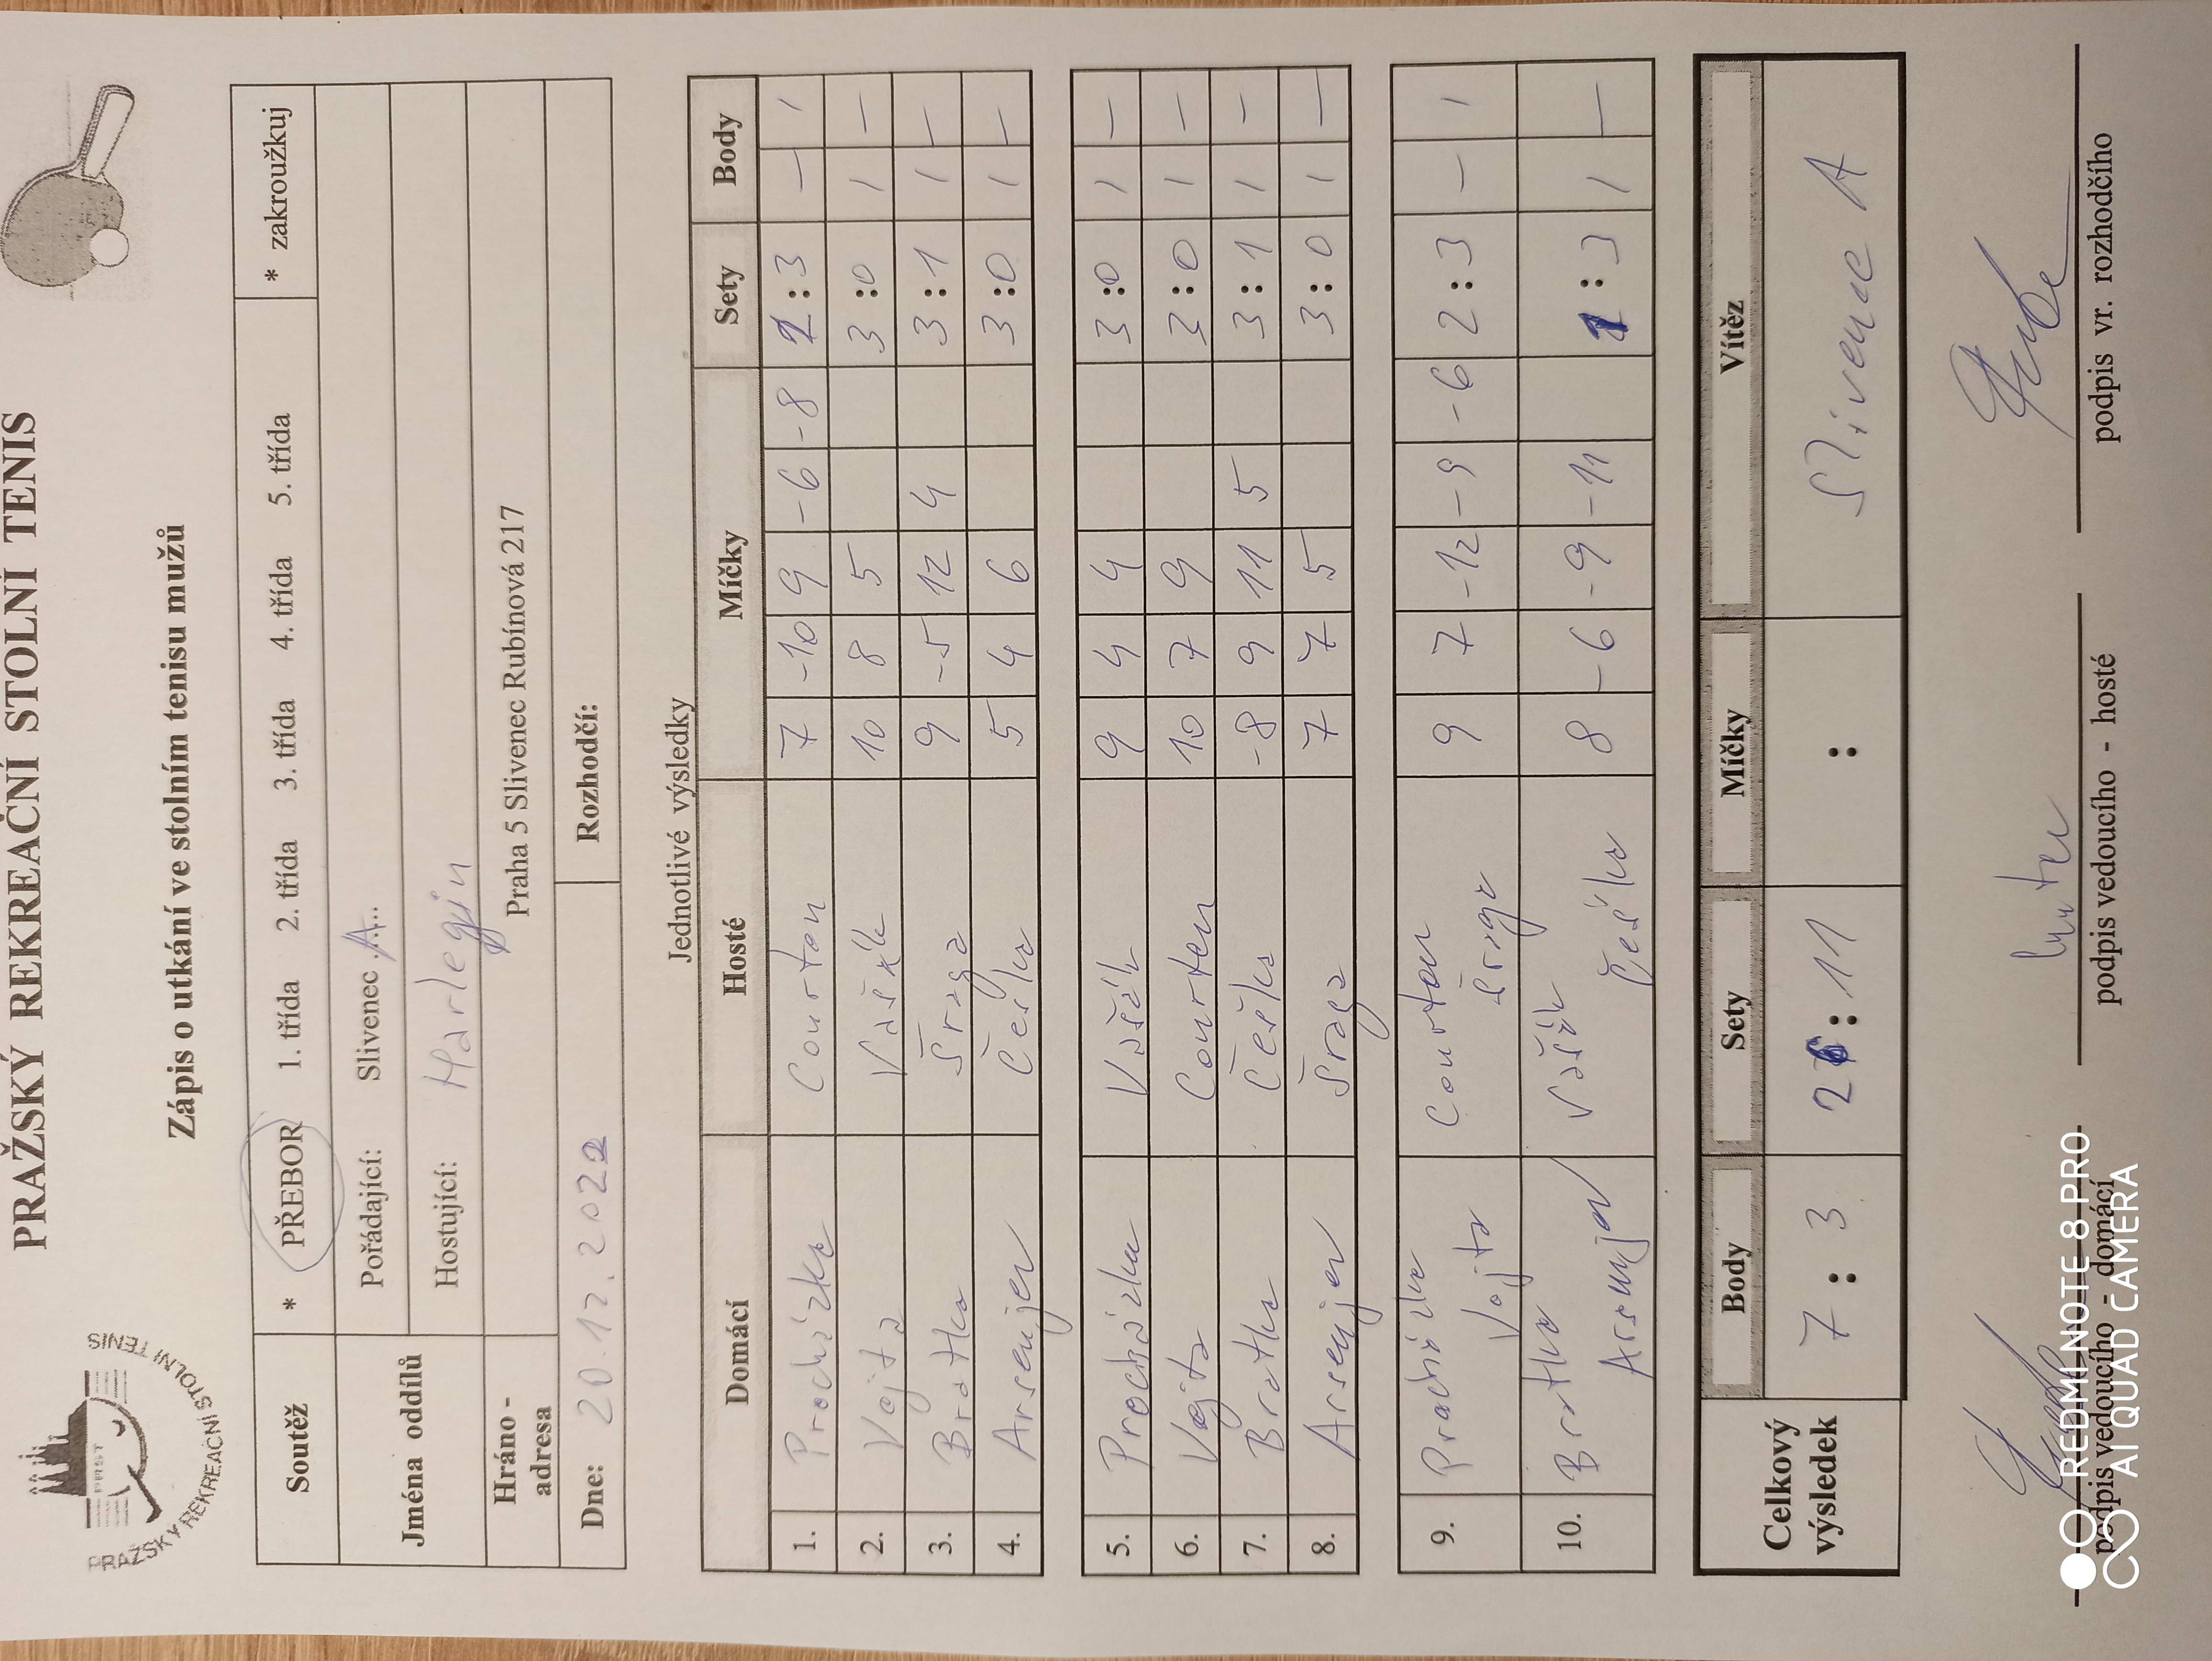 PRAŽSKÝ REKREAČNÍ STOLNÍ TENIS
PRAŽSKÝ REKREAČNÍ STOLNÍ TENIS
PRST
Zápis o utkání ve stolním tenisu mužů
Soutěž * PŘEBOR 1. třída 2. třída 3. třída 4. třída 5. třída * zakroužkuj
Jména oddílů
Pořádající: Slivenec A..
Hostující: Harlegin
Hráno - adresa Praha 5 Slivenec Rubínová 217
Dne: 20.12.2022 Rozhodčí:
Jednotlivé výsledky
Domácí Hosté Míčky Sety Body
1. Procházka Courton 7 -10 9 -6 -8 2:3 - 1
2. Vojta Vašík 10 8 5 3:0 1 -
3. Bratka Šraga 9 -5 12 4 3:1 1 -
4. Arsenjev Češka 5 4 6 3:0 1 -
5. Procházka Vašík 9 4 4 3:0 1 -
6. Vojta Courton 10 7 9 3:0 1 -
7. Bratka Češka -8 9 11 5 3:1 1 -
8. Arsenjev Šraga 7 7 5 3:0 1 -
9. Procházka Vojta Courton Šraga 9 7 -12 -9 -6 2:3 - 1
10. Bratka Arsenjev Vašík Češka 8 -6 -9 -11 1:3 1 -
Body Sety Míčky Vítěz
Celkový výsledek 7:3 26:11 : Slivenec A
podpis vedoucího - domácí podpis vedoucího - hosté podpis vr. rozhodčího
REDMI NOTE 8 PRO
AI QUAD CAMERA